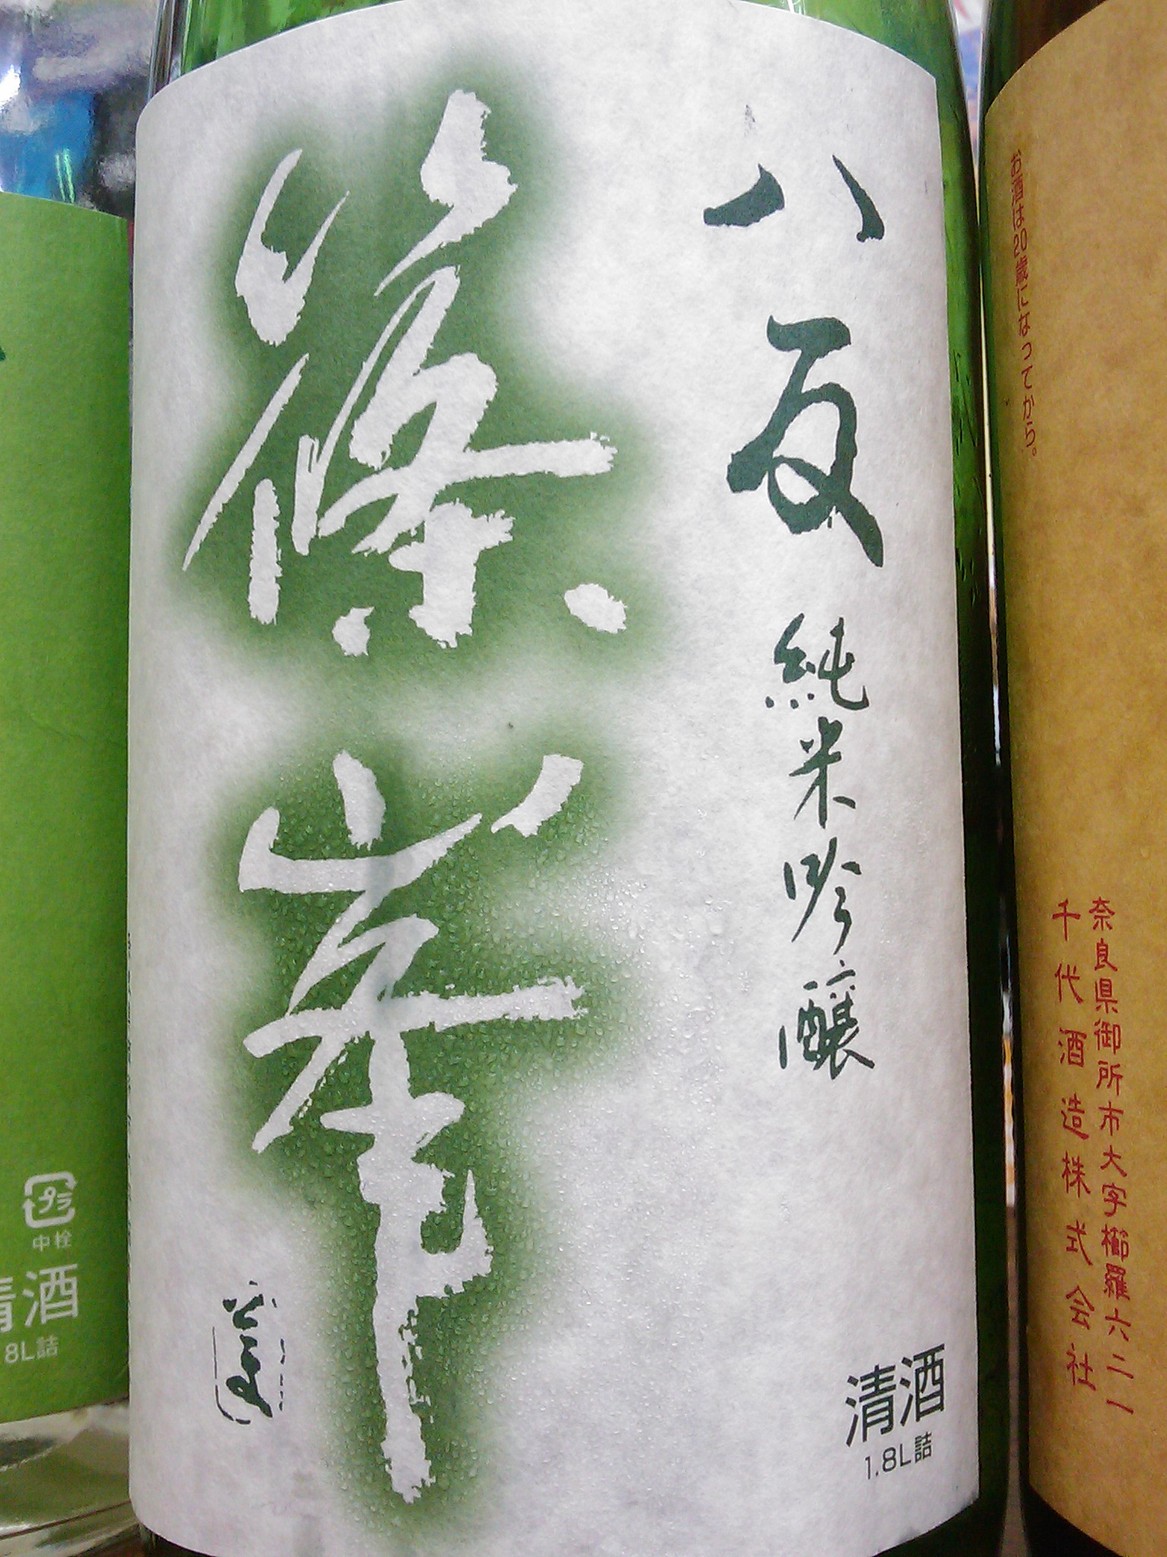 篠峯
八反
純米吟醸
清酒
1.8L詰
お酒は20歳になってから。
奈良県御所市大字櫛羅六二一
千代酒造株式会社
プラ
中栓
清酒
8L詰